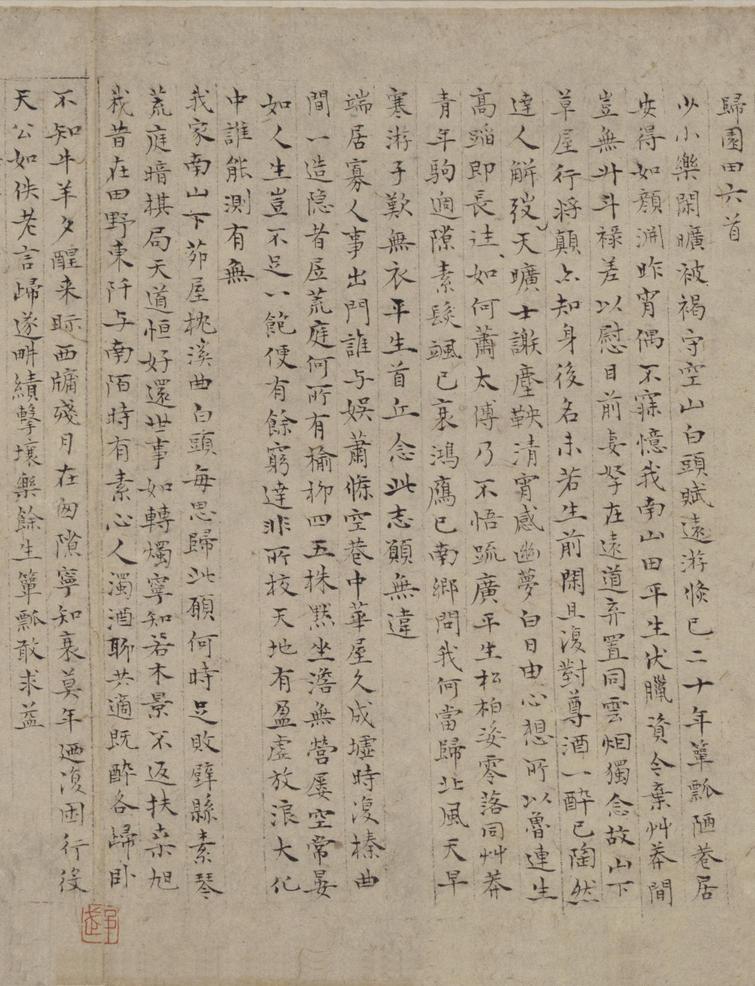 歸園田六首
少小樂閑曠被褐守空山白頭賦遠游倐已二十年簞瓢陋巷居
安得如顏淵昨宵偶不寐憶我南山田平生伏臘資今棄艸莽間
豈無升斗祿差以慰目前妻孥在遠道弃置同雲烟獨念故山下
草屋行將顛亦知身後名未若生前閑且復對尊酒一醉已陶然
達人解弢天曠士謝塵鞅清宵感幽夢白日由心想所以魯連生
高蹈即長往如何蕭太傅乃不悟踈廣平生松柏姿零落同艸莽
青年駒過隙素髮颯已衰鴻鴈已南鄉問我何當歸北風天早
寒游子歎無衣平生首丘念此志願無違
端居寡人事出門誰与娛蕭條空巷中華屋久成墟時復榛曲
間一造隐者居荒庭何所有榆柳四五株黙坐澹無營屢空常晏
如人生豈不足一飽便有餘窮達非所校天地有盈虛放浪大化
中誰能測有無
我家南山下茆屋枕溪曲白頭每思歸此願何時足敗壁縣素琴
荒庭暗棋局天道恒好還世事如轉燭寧知若木景不返扶桑旭
我昔在田野東阡与南陌時有素心人濁酒聊共適既醉各歸卧
不知牛羊夕醒来眎西牖殘月在囪隙寧知衰莫年廼復困行役
天公如佚老言歸遂畊績擊壤樂餘生簞瓢敢求益